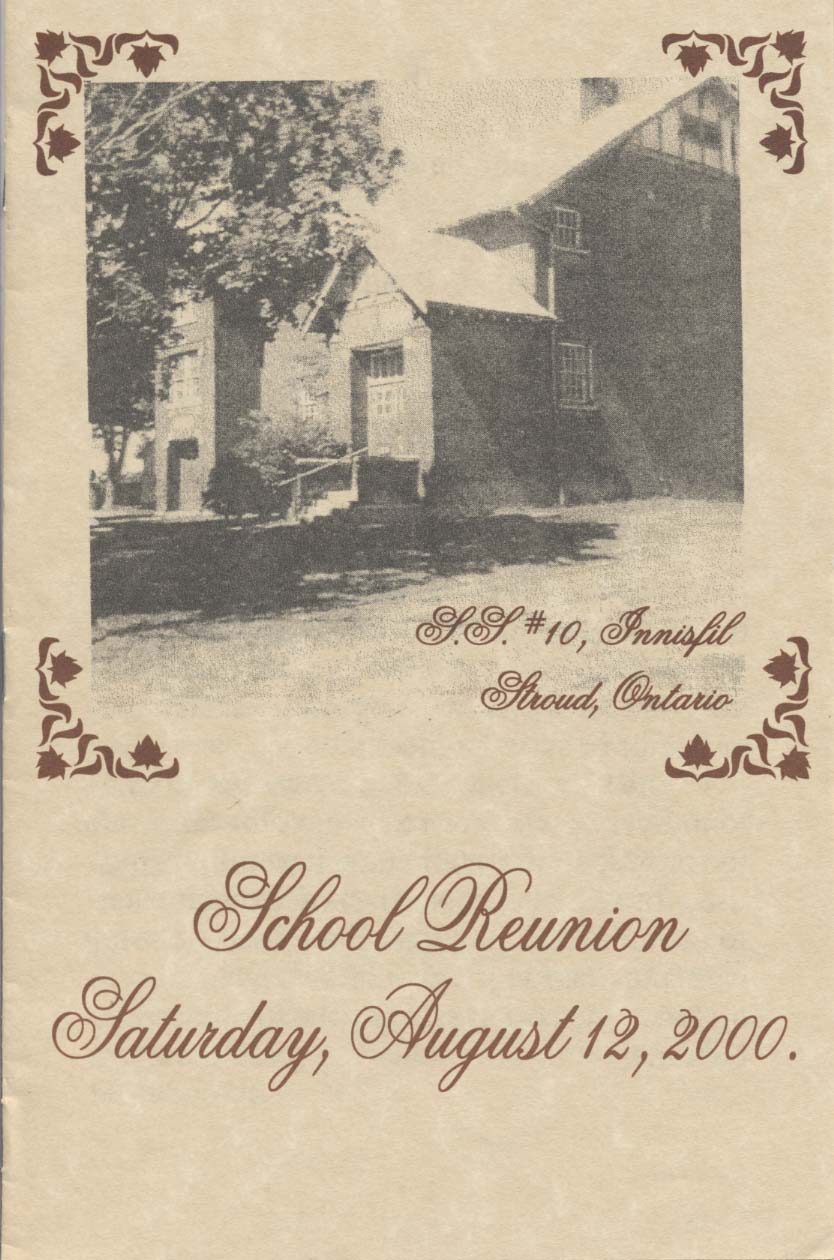 S.S. #10, Innisfil
Stroud, Ontario
School Reunion
Saturday, August 12, 2000.